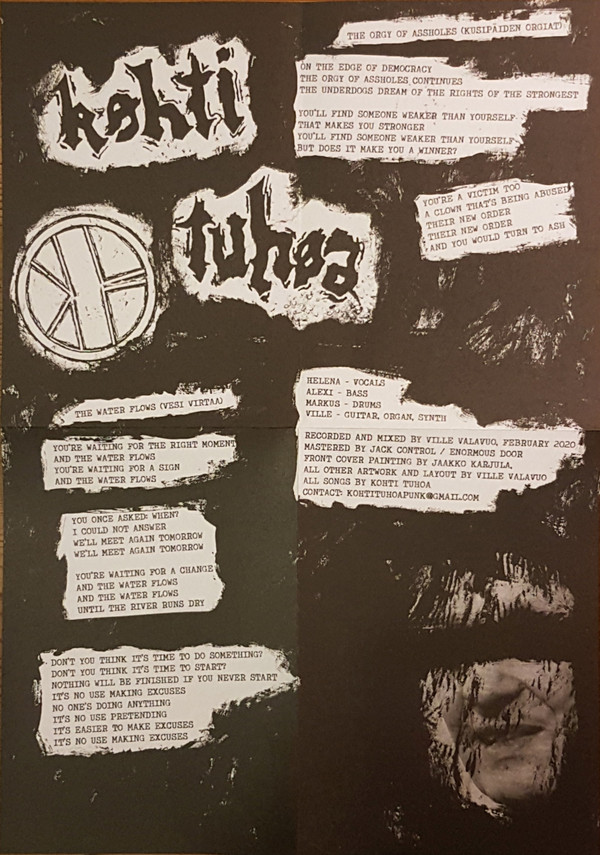 kohti
tuhoa
THE ORGY OF ASSHOLES (KUSIPÄIDEN ORGIAT)
ON THE EDGE OF DEMOCRACY
THE ORGY OF ASSHOLES CONTINUES
THE UNDERDOGS DREAM OF THE RIGHTS OF THE STRONGEST
YOU'LL FIND SOMEONE WEAKER THAN YOURSELF
THAT MAKES YOU STRONGER
YOU'LL FIND SOMEONE WEAKER THAN YOURSELF
BUT DOES IT MAKE YOU A WINNER?
YOU'RE A VICTIM TOO
A CLOWN THAT'S BEING ABUSED
THEIR NEW ORDER
THEIR NEW ORDER
AND YOU WOULD TURN TO ASH
THE WATER FLOWS (VESI VIRTAA)
YOU'RE WAITING FOR THE RIGHT MOMENT
AND THE WATER FLOWS
YOU'RE WAITING FOR A SIGN
AND THE WATER FLOWS
YOU ONCE ASKED: WHEN?
I COULD NOT ANSWER
WE'LL MEET AGAIN TOMORROW
WE'LL MEET AGAIN TOMORROW
YOU'RE WAITING FOR A CHANGE
AND THE WATER FLOWS
AND THE WATER FLOWS
UNTIL THE RIVER RUNS DRY
DON'T YOU THINK IT'S TIME TO DO SOMETHING?
DON'T YOU THINK IT'S TIME TO START?
NOTHING WILL BE FINISHED IF YOU NEVER START
IT'S NO USE MAKING EXCUSES
NO ONE'S DOING ANYTHING
IT'S NO USE PRETENDING
IT'S EASIER TO MAKE EXCUSES
IT'S NO USE MAKING EXCUSES
HELENA - VOCALS
ALEXI - BASS
MARKUS - DRUMS
VILLE - GUITAR, ORGAN, SYNTH
RECORDED AND MIXED BY VILLE VALAVUO, FEBRUARY 2020
MASTERED BY JACK CONTROL / ENORMOUS DOOR
FRONT COVER PAINTING BY JAAKKO KARJULA.
ALL OTHER ARTWORK AND LAYOUT BY VILLE VALAVUO
ALL SONGS BY KOHTI TUHOA
CONTACT: KOHTITUHOAPUNK@GMAIL.COM